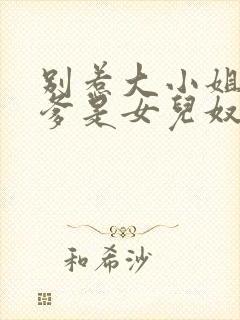 別惹大小姐
爹是女兒奴
和希沙